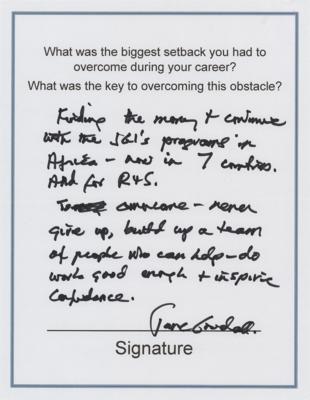 What was the biggest setback you had to
overcome during your career?
What was the key to overcoming this obstacle?
Finding the money to continue
with the JGI's programs in
Africa - now in 7 countries.
And for R&S.
To overcome - never
give up, build up a team
of people who can help - do
work good enough + inspire
confidence.
Jane Goodall.
Signature